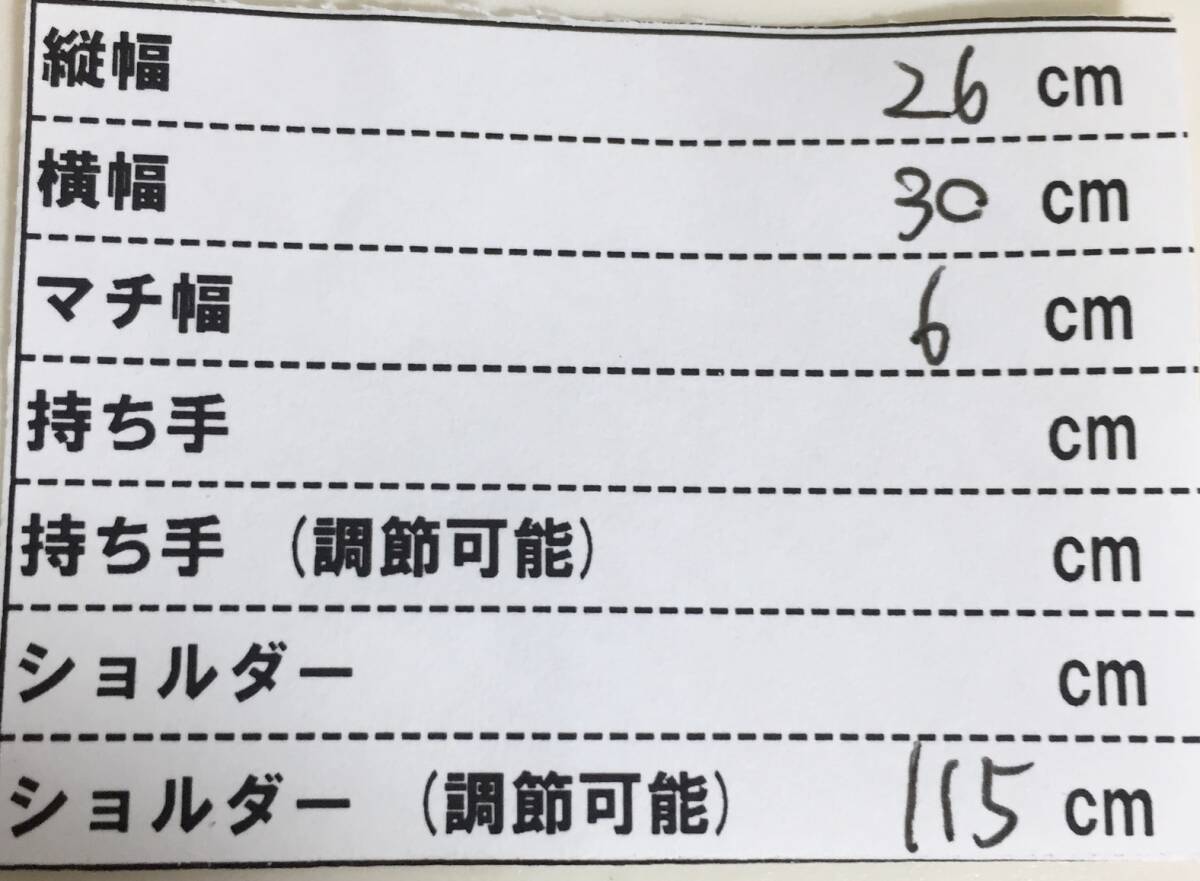 縦幅 26 cm
横幅 30 cm
マチ幅 6 cm
持ち手 cm
持ち手 (調節可能) cm
ショルダー cm
ショルダー (調節可能) 115 cm